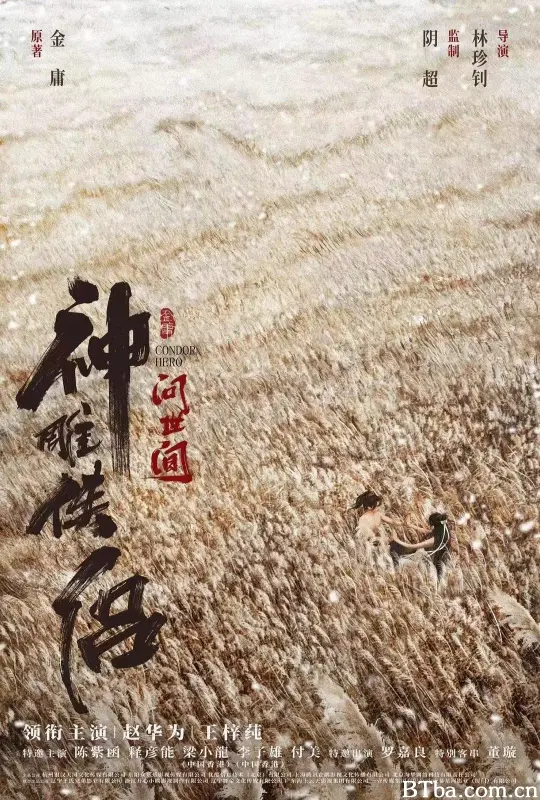 原著
金庸
导演
林珍钊
监制
阴超
神雕侠侣
金庸
CONDOR
HERO
问世间
领衔主演 | 赵华为 王梓莼
特邀主演 陈紫函 释彦能 梁小龍 李子雄 付美 特邀出演 罗嘉良 特别客串 董璇
(中国香港) (中国香港)
BTba.com.cn